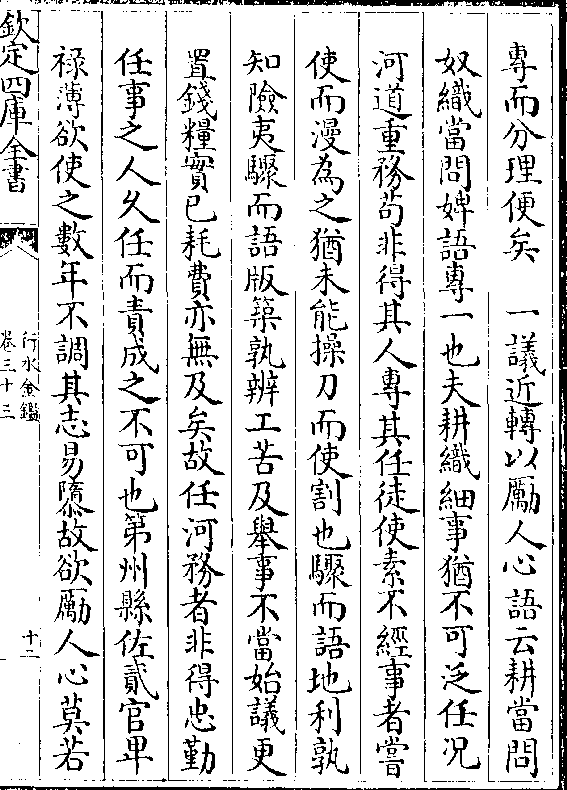 專而分理便矣　一議近轉以勵人心語云耕當問
奴織當問婢語專一也夫耕織細事猶不可泛任況
河道重務苟非得其人專其任徒使素不經事者嘗
使而漫為之猶未能操刀而使割也驟而語地利孰
知險夷驟而語版築孰辨工苦及舉事不當始議更
置錢糧實已耗費亦無及矣故任河務者非得忠勤
任事之人久任而責成之不可也第州縣佐貳官卑
祿薄欲使之數年不調其志易隳故欲勵人心莫若
欽定四庫全書
行水金鑑
卷三十三
十二